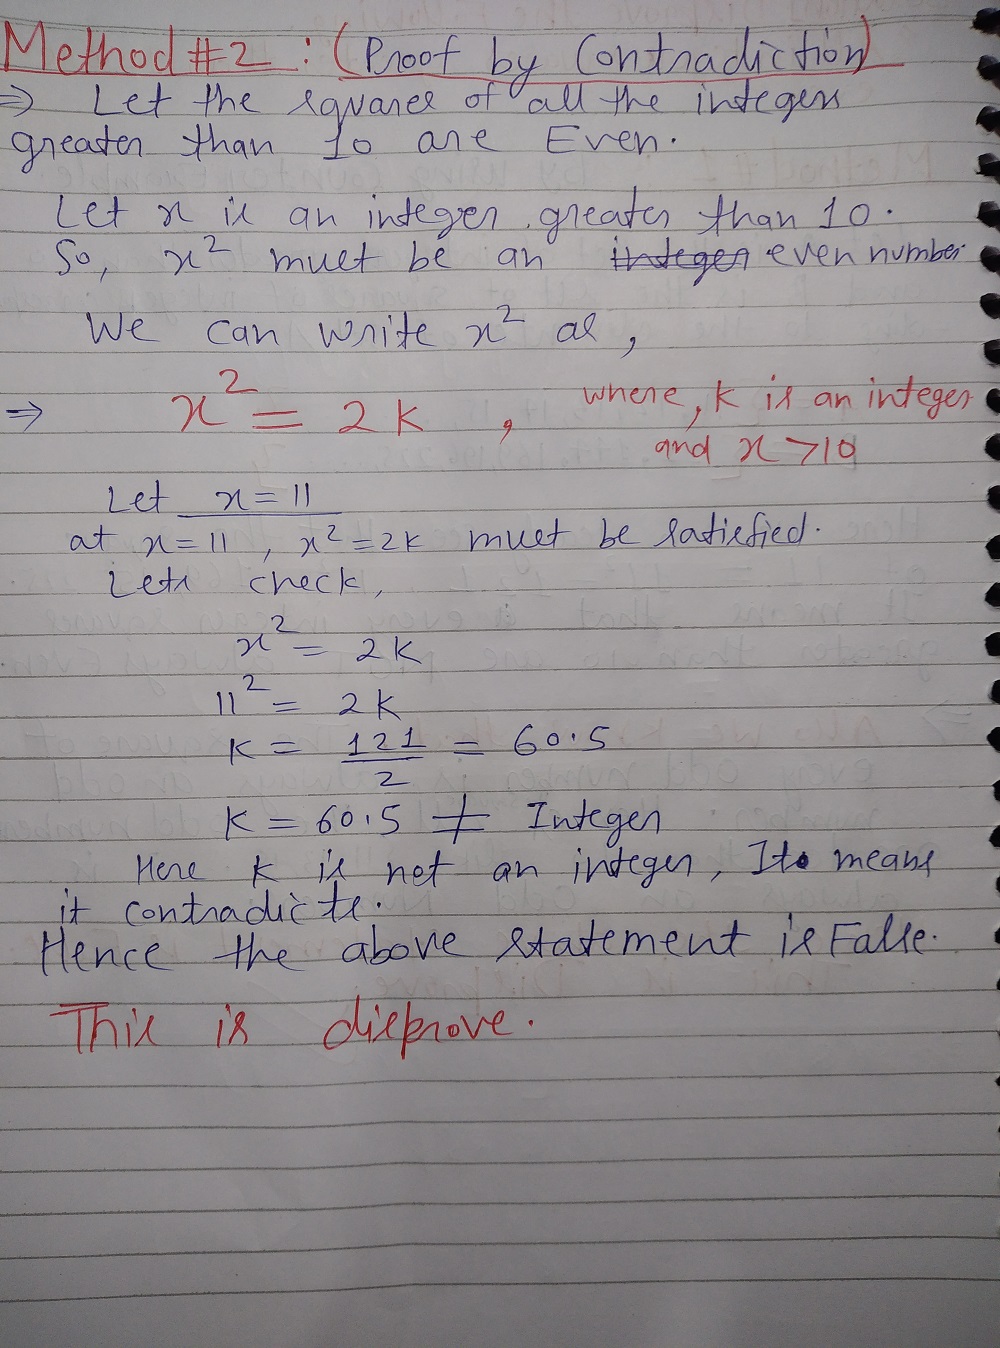 Method #2 : (Proof by Contradiction)
⇒ Let the squares of all the integers
greater than 10 are Even.
Let x is an integer greater than 10.
So, x² must be an integer even number
We can write x² as,
⇒ x² = 2k , where, k is an integer
and x > 10
Let x = 11
at x = 11 , x² = 2k must be satisfied.
Lets check,
x² = 2k
11² = 2k
k = 121/2 = 60.5
k = 60.5 ≠ Integer
Here k is not an integer, Its means
it contradicts.
Hence the above statement is False.
This is disprove.